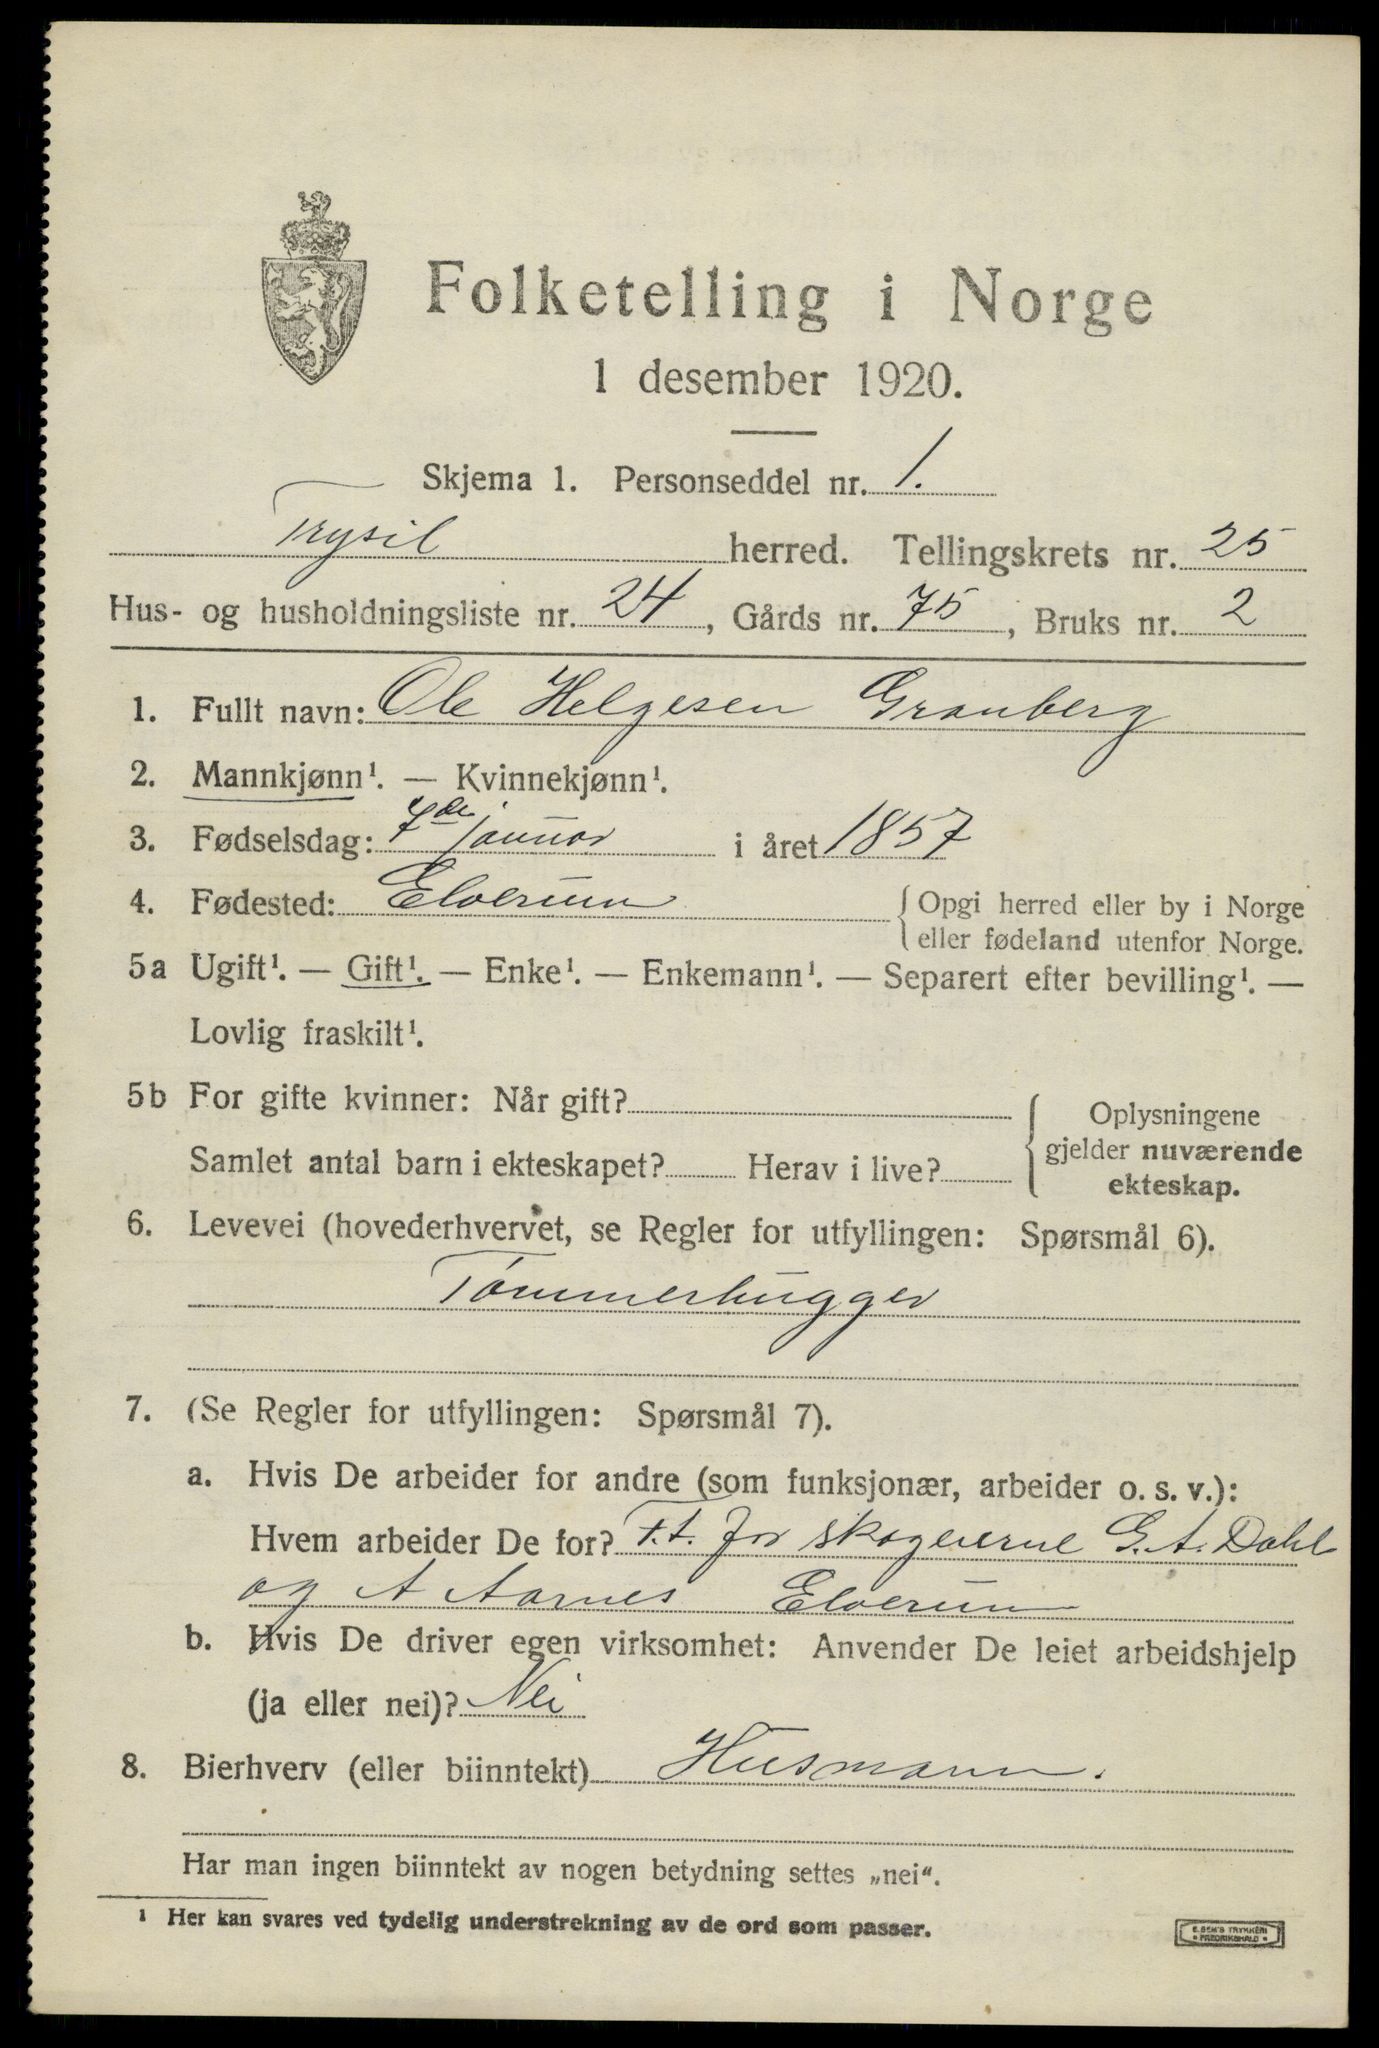 Folketelling i Norge
1 desember 1920.
Skjema 1. Personseddel nr. 1.
Trysil herred. Tellingskrets nr. 25
Hus- og husholdningsliste nr. 24, Gårds nr. 75, Bruks nr. 2
1. Fullt navn: Ole Helgesen Granberg
2. Mannkjønn¹. — Kvinnekjønn¹.
3. Fødselsdag: 7de januar i året 1857
4. Fødested: Elverum { Opgi herred eller by i Norge
eller fødeland utenfor Norge.
5a Ugift¹. — Gift¹. — Enke¹. — Enkemann¹. — Separert efter bevilling¹. —
Lovlig fraskilt¹.
5b For gifte kvinner: Når gift?
Samlet antal barn i ekteskapet? Herav i live?
{ Oplysningene
gjelder nuværende
ekteskap.
6. Levevei (hovederhvervet, se Regler for utfyllingen: Spørsmål 6).
Tømmerhugger
7. (Se Regler for utfyllingen: Spørsmål 7).
a. Hvis De arbeider for andre (som funksjonær, arbeider o. s. v.):
Hvem arbeider De for? F.t. for skogeierne G. A. Dahl
og A Aarnes Elverum
b. Hvis De driver egen virksomhet: Anvender De leiet arbeidshjelp
(ja eller nei)? Nei
8. Bierhverv (eller biinntekt) Husmann.
Har man ingen biinntekt av nogen betydning settes „nei“.
¹ Her kan svares ved tydelig understrekning av de ord som passer.
E. SEM'S TRYKKERI
FREDRIKSHALD